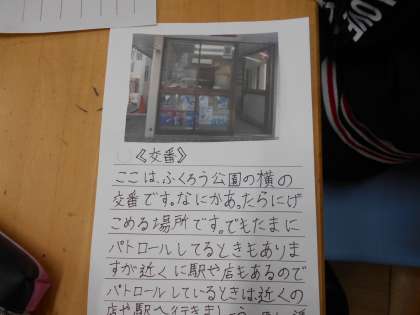 《交番》
ここは、ふくろう公園の横の
交番です。なにかあったらにげ
こめる場所です。でもたまに
パトロールしてるときもありま
すが近くに駅や店もあるので
パトロールしているときは近くの
店や駅へ行きましょう。
LOVE